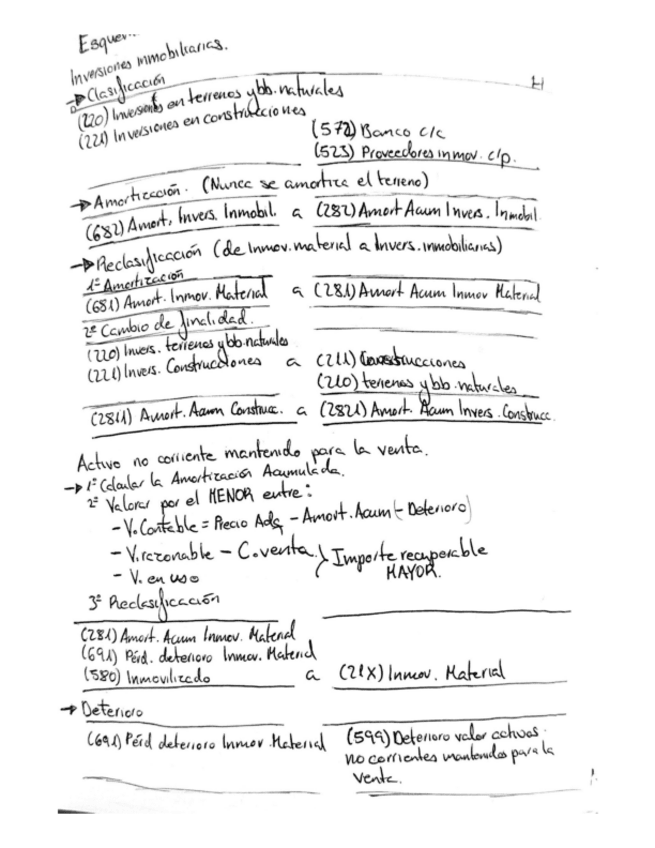 Esquem...
Inversiones inmobiliarias.
→ Clasificación
(220) Inversiones en terrenos y bb. naturales
(221) Inversiones en construcciones
(572) Banco c/c
(523) Proveedores inmov. c/p.
→ Amortización. (Nunca se amortiza el terreno)
(682) Amort. Invers. Inmobil. a (282) Amort Acum Invers. Inmobil
→ Reclasificación (de Inmov. material a Invers. inmobiliarias)
1º Amortización
(681) Amort. Inmov. Material a (281) Amort Acum Inmov Material
2º Cambio de finalidad.
(220) Invers. terrenos y bb. naturales
(221) Invers. Construcciones a (211) Construcciones
(210) terrenos y bb. naturales
(2811) Amort. Acum Construcc. a (2821) Amort. Acum Invers. Construcc.
Activo no corriente mantenido para la venta.
→ 1º Calcular la Amortización Acumulada.
2º Valorar por el MENOR entre:
- V. Contable = Precio Adq - Amort. Acum (- Deterioro)
- V. razonable - C. venta } Importe recuperable
- V. en uso MAYOR.
3º Reclasificación
(281) Amort. Acum Inmov. Material
(691) Pérd. deterioro Inmov. Material
(580) Inmovilizado a (21X) Inmov. Material
→ Deterioro
(691) Pérd deterioro Inmov. Material (599) Deterioro valor activos
no corrientes mantenidos para la
venta.